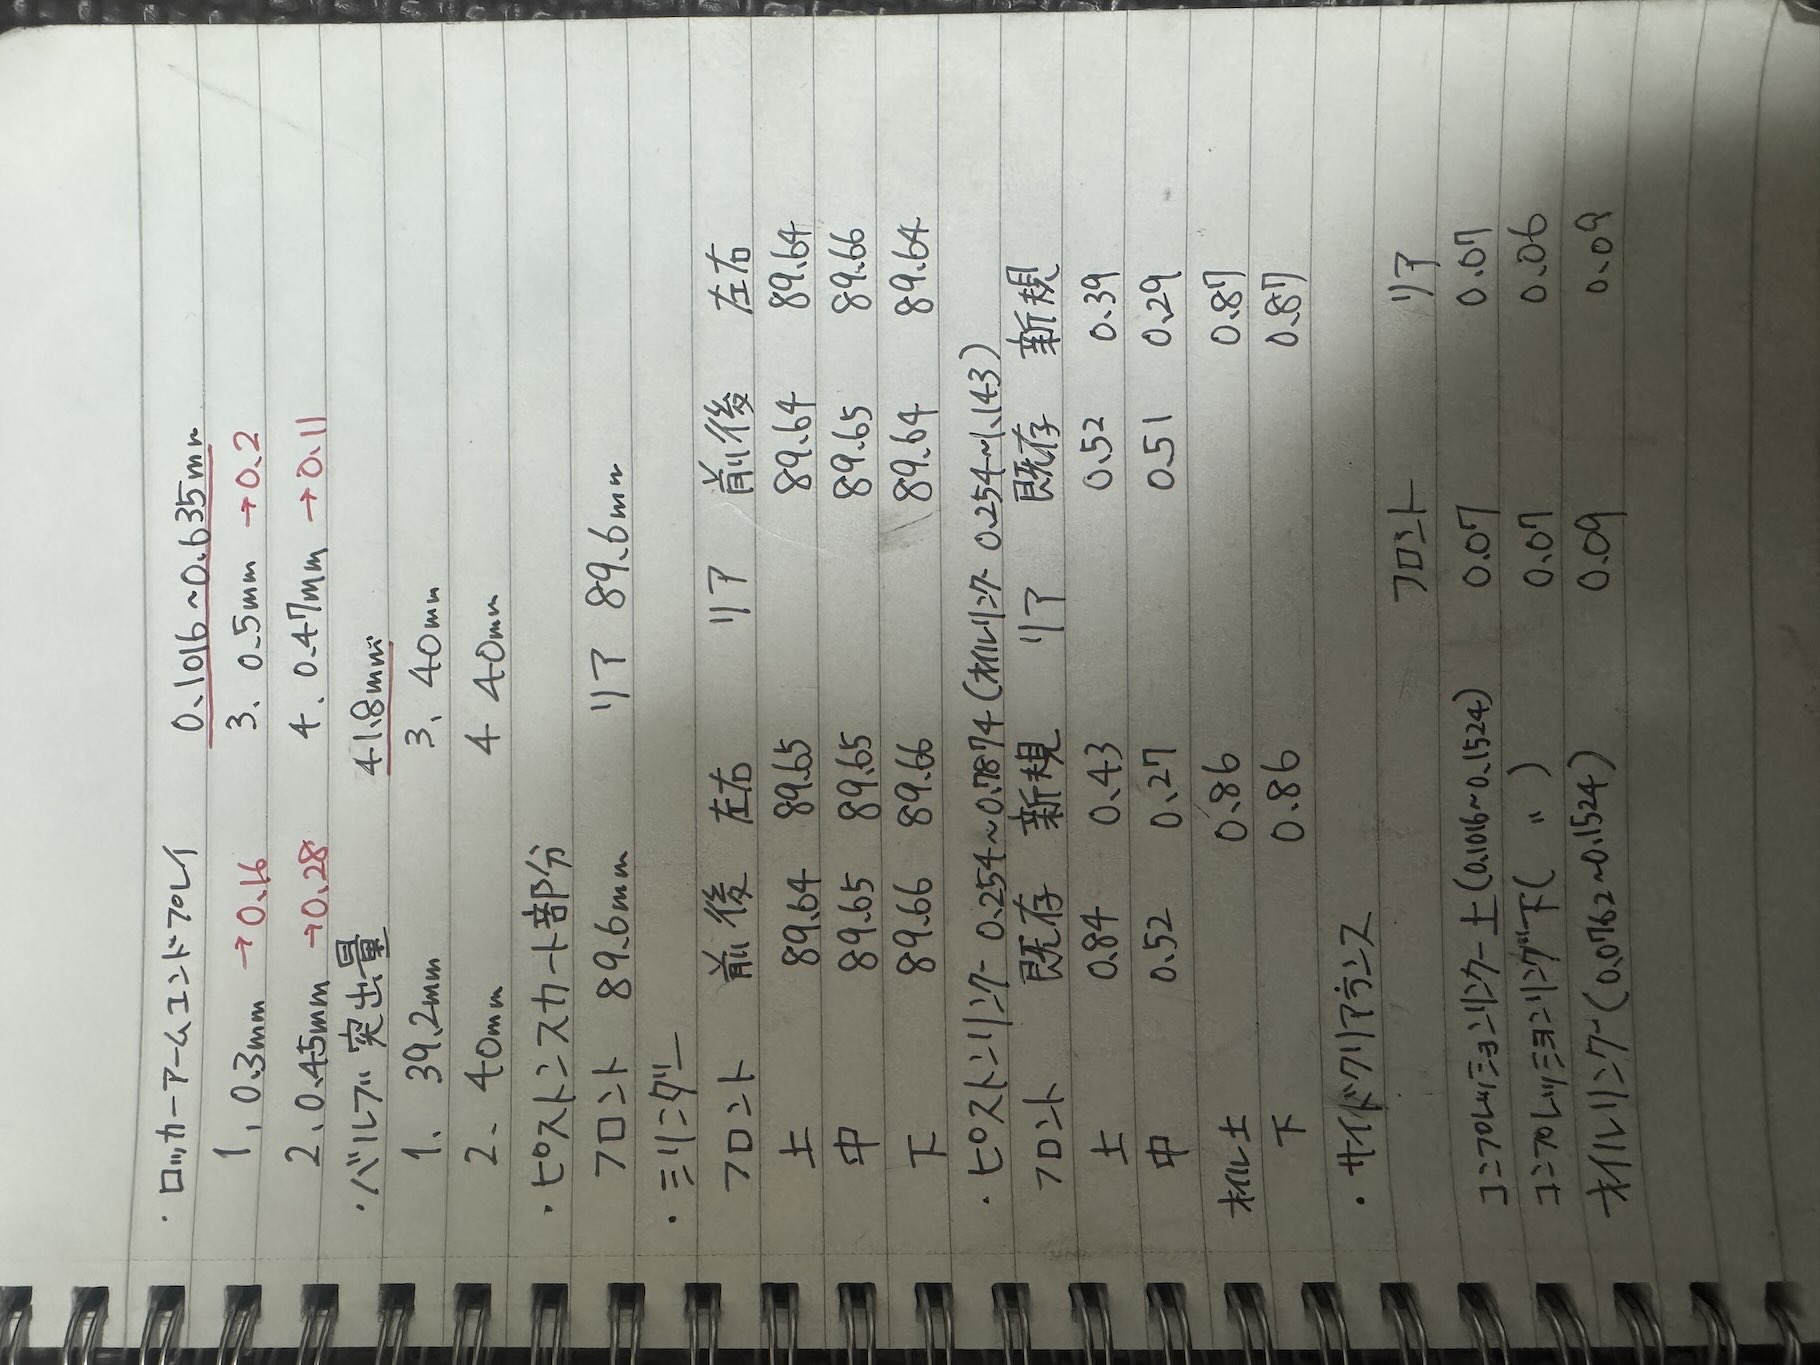 ・ロッカーアームエンドプレイ 0.1016~0.635mm
1, 0.3mm →0.16 3. 0.5mm →0.2
2. 0.45mm →0.28 4. 0.47mm →0.11
・バルブ突出量 41.8mm
1. 39.2mm 3. 40mm
2. 40mm 4 40mm
・ピストンスカート部分
フロント 89.6mm リア 89.6mm
・シリンダー
フロント 前後 左右 リア 前後 左右
上 89.64 89.65 89.64 89.64
中 89.65 89.65 89.65 89.66
下 89.66 89.66 89.64 89.64
・ピストンリング 0.254~0.7874 (オイルリング 0.254~1.143)
フロント 既存 新規 リア 既存 新規
上 0.84 0.43 0.52 0.39
中 0.52 0.27 0.51 0.29
オイル上 0.86 0.87
下 0.86 0.87
・サイドクリアランス
フロント リア
コンプレッションリング上(0.1016~0.1524) 0.07 0.07
コンプレッションリング下( 〃 ) 0.07 0.06
オイルリング(0.0762~0.1524) 0.09 0.09